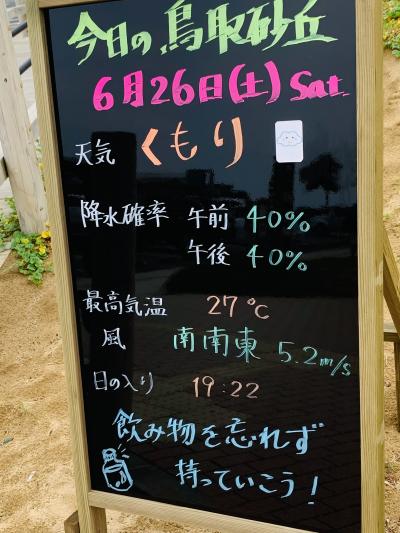 今日の鳥取砂丘
6月26日(土) Sat
天気 くもり
降水確率 午前 40%
午後 40%
最高気温 27℃
風 南南東 5.2m/s
日の入り 19:22
飲み物を忘れず
持っていこう!